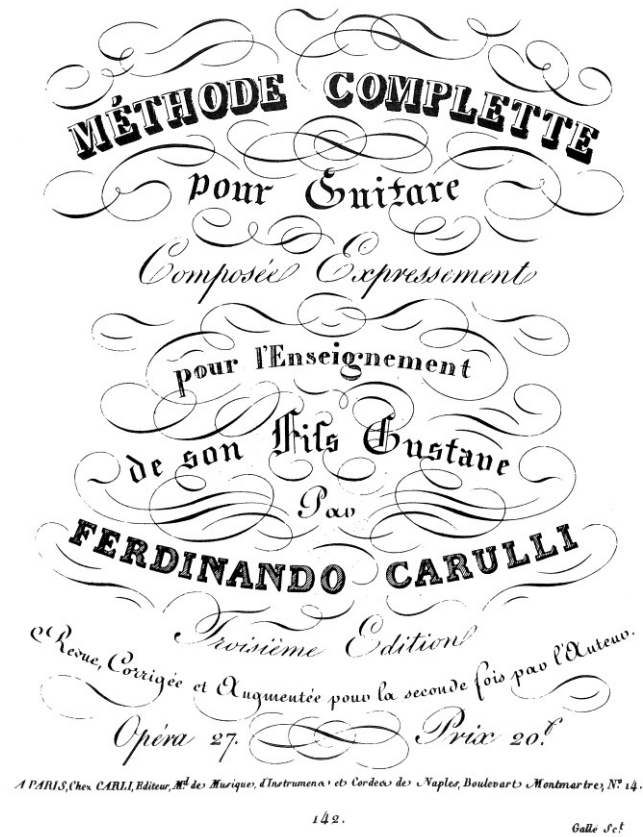 MÉTHODE COMPLETTE
pour Guitare
Composée Expressement
pour l'Enseignement
de son Fils Gustave
Par
FERDINANDO CARULLI
Troisième Edition
Revue, Corrigée et Augmentée pour la seconde fois par l'Auteur.
Opéra 27. Prix 20.f
A PARIS, Chez CARLI, Editeur, Md. de Musique, d'Instrumens et Cordes de Naples, Boulevart Montmartre, No. 14.
142.
Gallé Sct.